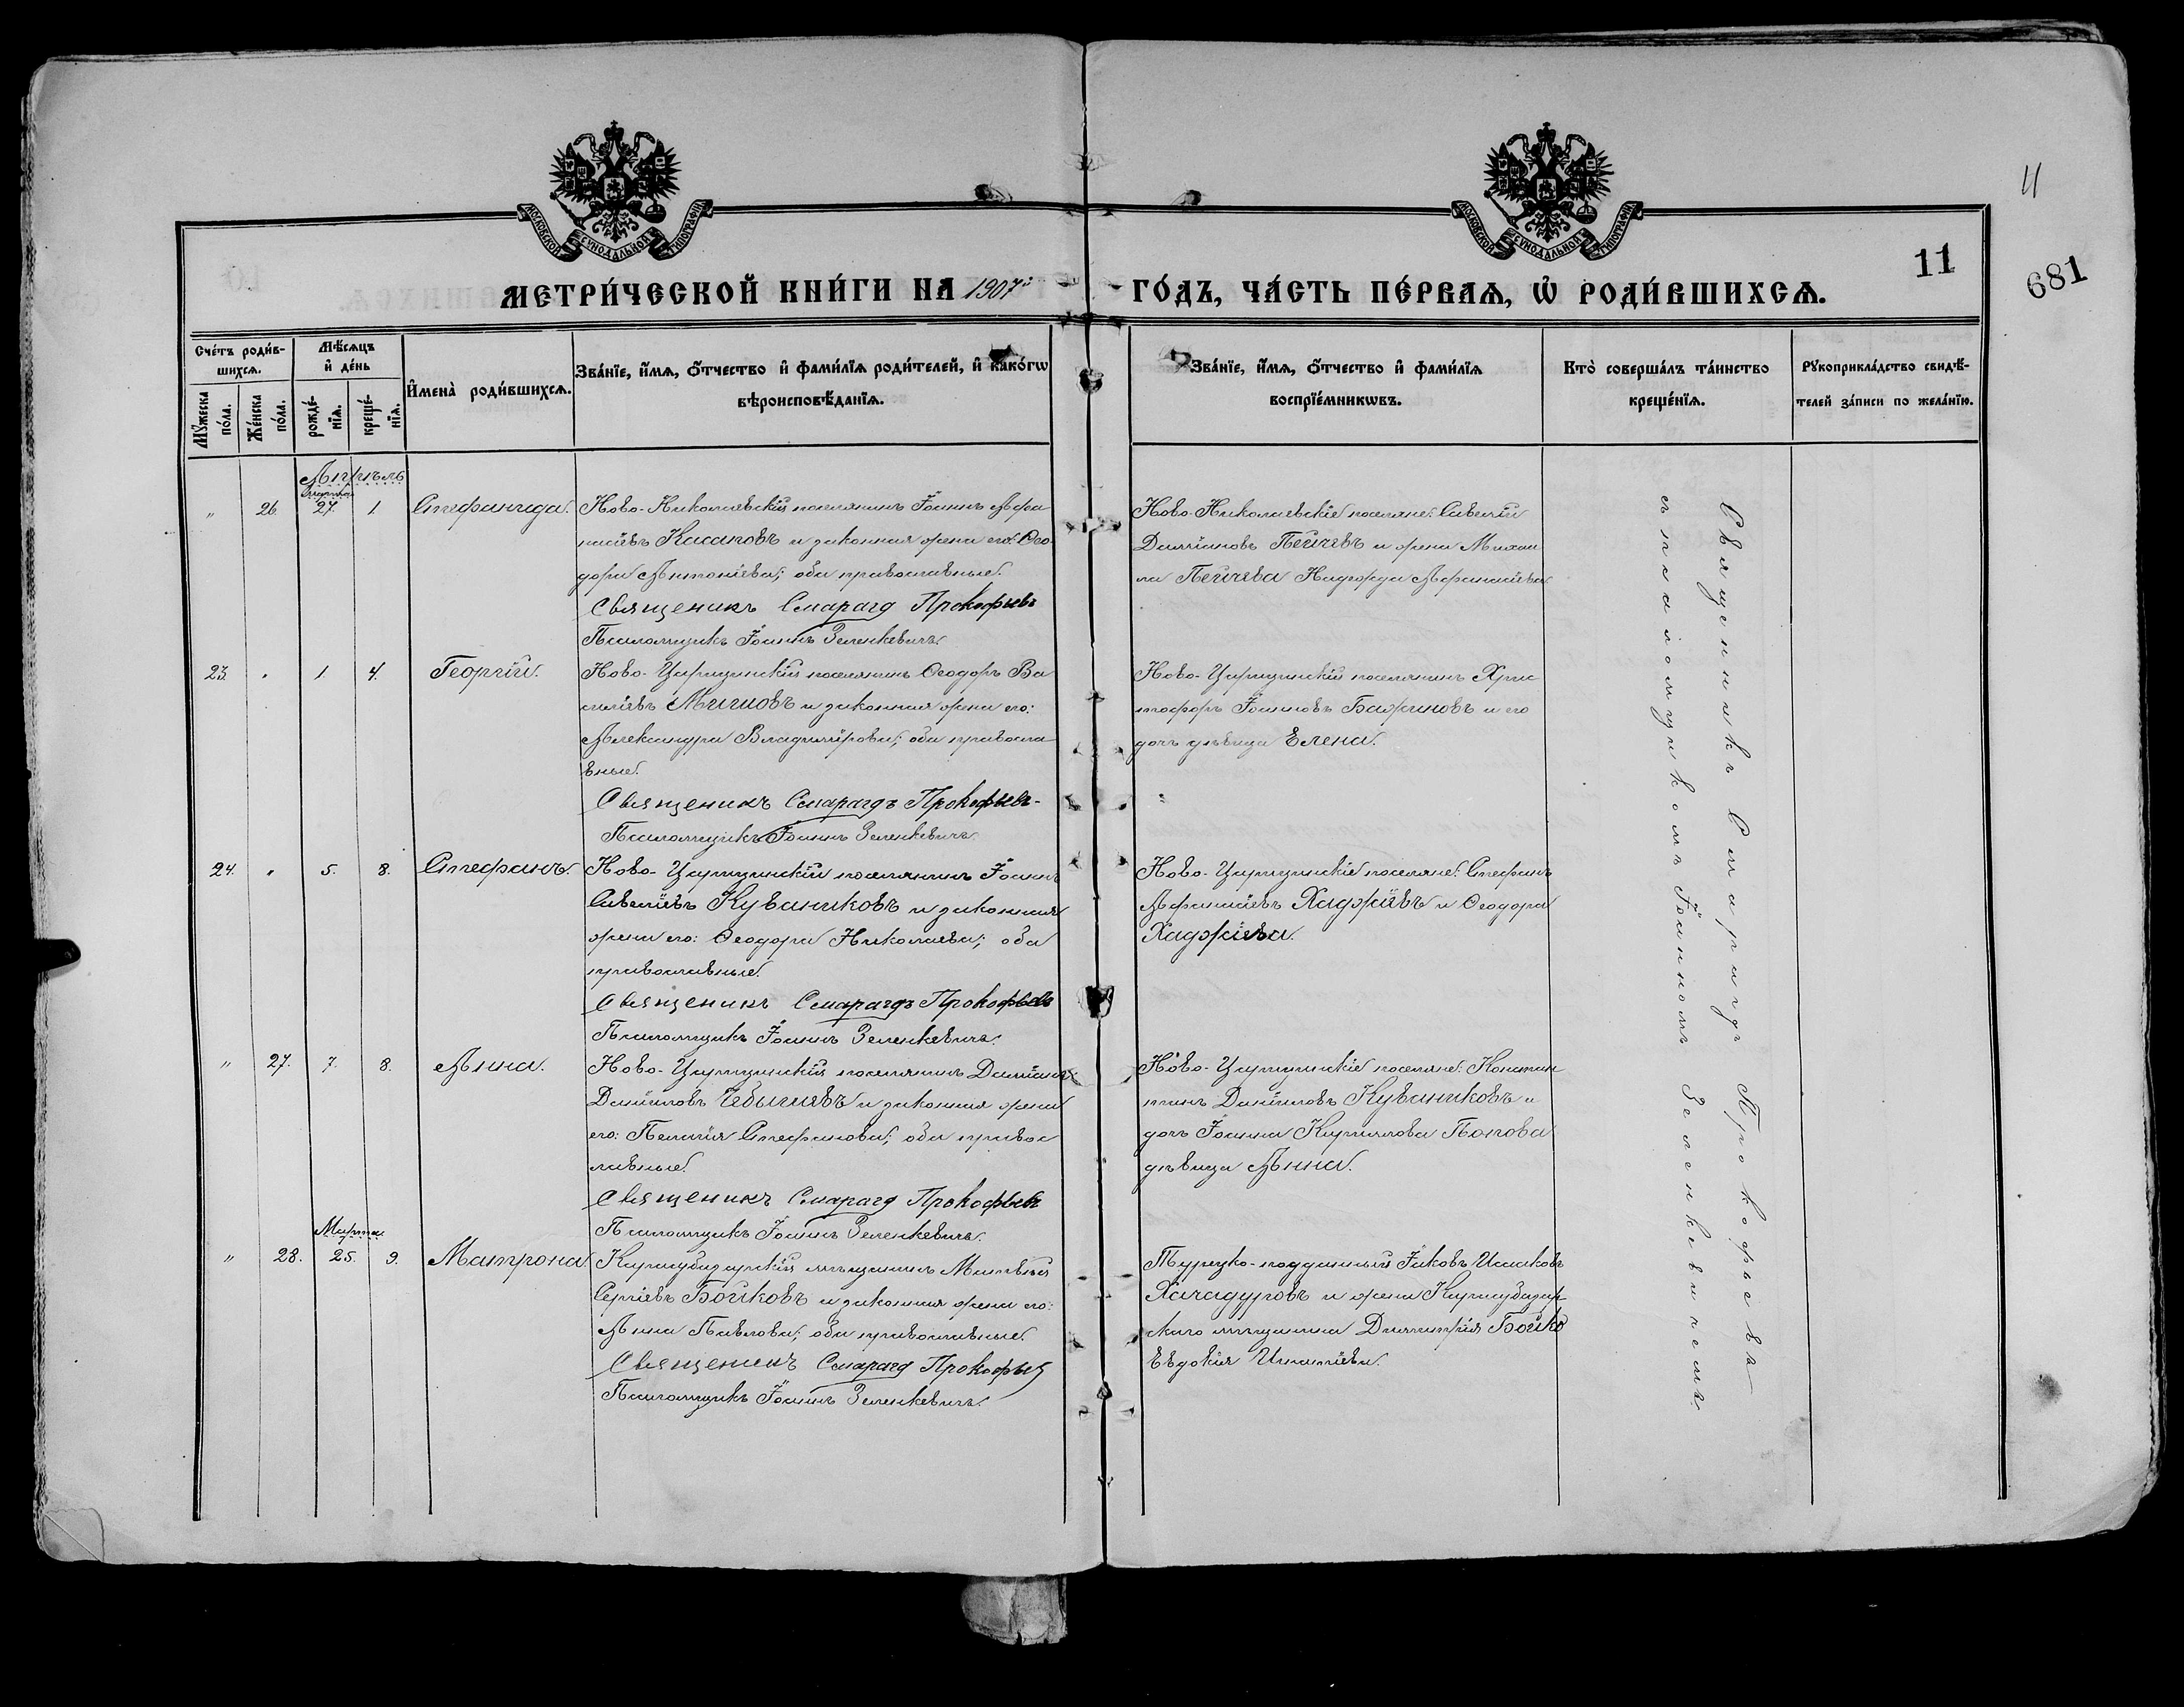 МОСКОВСКОЙ СѴНОДАЛЬНОЙ ТИПОГРАФІИ
МОСКОВСКОЙ СѴНОДАЛЬНОЙ ТИПОГРАФІИ
11
11
681
МЕТРИ́ЧЕСКОЙ КНИ́ГИ НА 1907 ГО́ДЪ, ЧА́СТЬ ПЕ́РВАѦ, Ѡ РОДИ́ВШИХСѦ.
Сче́тъ роди́в-
шихсѧ.
Мꙋ́жеска по́ла.
Же́нска по́ла.
Мѣ́сѧцъ
и де́нь
рожде́-нїѧ.
креще́-нїѧ.
Имена̀ роди́вшихсѧ.
Зва́нїе, и́мѧ, о́тчество и фами́лїѧ роди́телей, и како́гѡ
вѣроисповѣ́данїѧ.
Зва́нїе, и́мѧ, о́тчество и фами́лїѧ
воспрїе́мникѡвъ.
Кто̀ соверша́лъ та́инство
креще́нїѧ.
Рꙋкоприкла́дство свидѣ́-
телей за́писи по жела́нїю.
Апрѣль
" 26. 27. 1. Стефанида.
Ново-Николаевскій поселянинъ Іоаннъ Афа
насіевъ Касаповъ и законная жена его: Ѳео-
дора Антоніева; оба православные.
Священикъ Смарагд Прокофьевъ
Псаломщикъ Іоаннъ Зеленкевичъ.
Ново-Николаевскіе поселяне: Савелій
Даміановъ Пейчевъ и жена Михаи
ла Пейчева Надежда Афанасіева
23. " 1. 4. Георгій.
Ново-Царицынскій поселянинъ Ѳеодоръ Ва
силіевъ Мигновъ и законная жена его:
Александра Владиміровa; оба правосла
вные.
Священикъ Смарагдъ Прокофьевъ
Псаломщикъ Іоаннъ Зеленкевичъ
Ново-Царицынскій поселянинъ Хрис
тофоръ Іоанновъ Бажановъ и его
дочь дѣвица Елена.
24. " 5. 8. Стефанъ.
Ново-Царицынскій поселянинъ Іоаннъ
Савеліевъ Куванжиковъ и законная
жена его: Ѳеодора Николаева; оба
православные.
Священикъ Смарагдъ Прокофьевъ
Псаломщикъ Іоаннъ Зеленкевичъ.
Ново-Царицынскіе поселяне: Стефанъ
Афанасіевъ Хаджіевъ и Ѳеодора
Хаджіева.
" 27. 7. 8. Анна.
Ново-Царицынскій поселянинъ Даміанъ
Даніиловъ и законная жена
его: Пелагія Стефанова; оба правос
лавные.
Священикъ Смарагд Прокофьевъ
Псаломщикъ Іоаннъ Зеленкевичъ.
Ново-Царицынскіе поселяне: Констан
тинъ Даніиловъ и
дочь Іоанна Кириллова Попова
дѣвица Анна.
Марта
" 28. 25. 9. Матрона.
Карасубазарскій мѣщанинъ Матвѣй
Сергіевъ Бойковъ и законная жена его:
Анна Павлова; оба православные.
Священикъ Смарагд Прокофьев
Псаломщикъ Іоаннъ Зеленкевичъ.
Турецко-подданный Іаковъ Исааковъ
Хачадуровъ и жена Карасубазар-
скаго мѣщанина Димитрія Бойко
Евдокія Игнатіева.
Священникъ Смарагдъ Прокофьевъ
съ псаломщикомъ Іоанномъ Зеленкевичемъ.